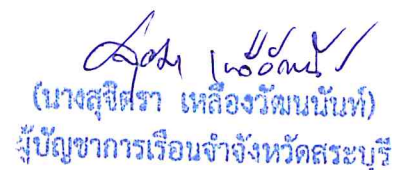 (นางสุจิตรา เหลืองวัฒนนันท์)
ผู้บัญชาการเรือนจำจังหวัดสระบุรี